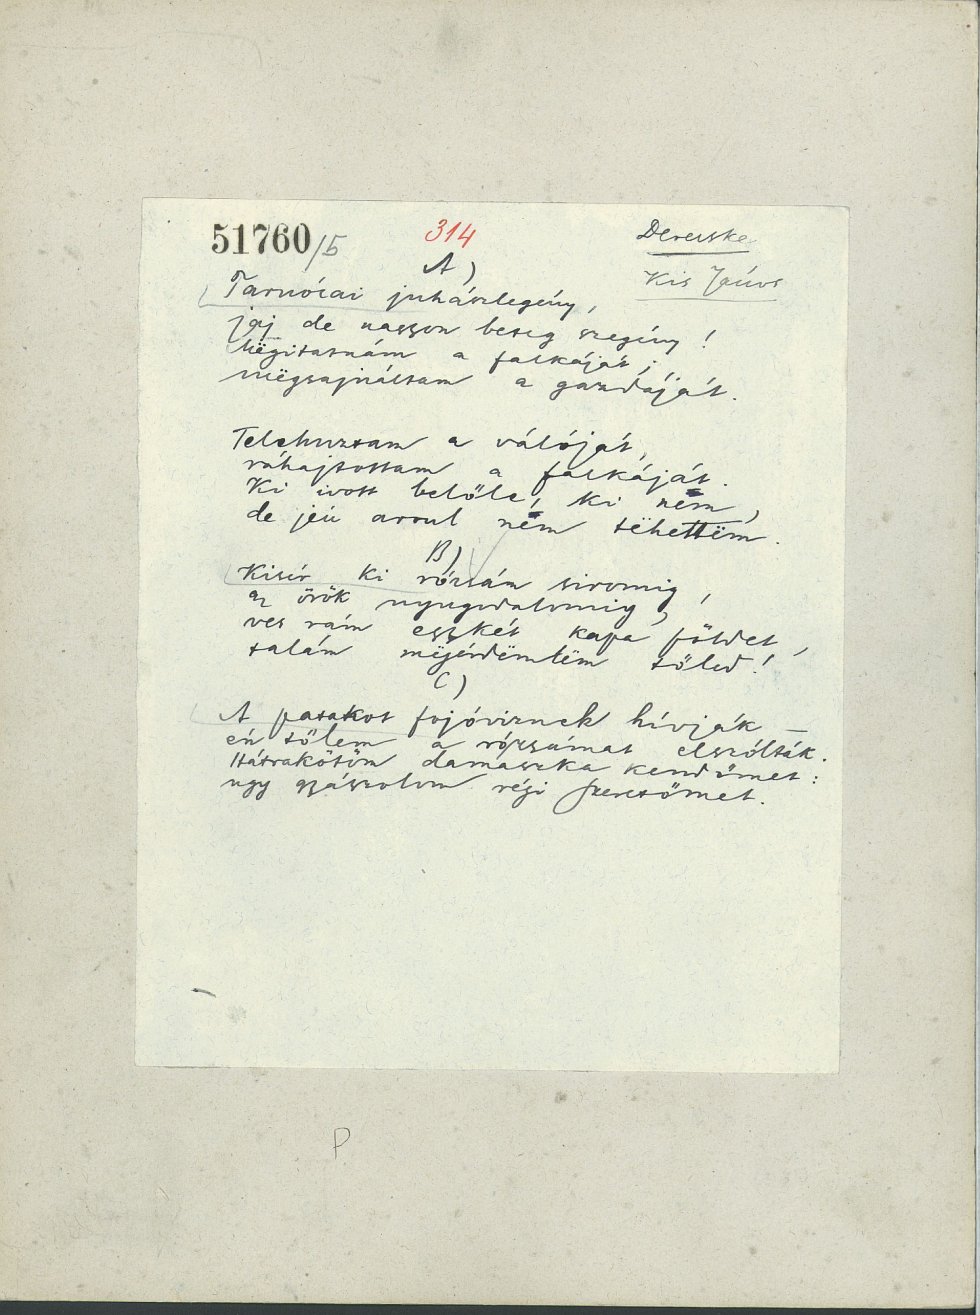 51760/5
314
Derecske
Kis János
A)
Tarnócai juhászlegény,
jaj de nasson beteg szegény!
Mëgitatnám a falkáját;
mëgsajnáltam a gazdáját.
Telehuztam a válóját,
ráhajtottam a falkáját.
Ki ivott belőle, ki nëm,
de jén arrul nëm tëhettëm.
B)
Kisír ki rózsám siromig,
az örök nyugodalomig,
ves rám eszkét kapa földet,
talám mëjérdëmlëm tőled!
C)
A patakot fojóviznek hívják –
én tőlem a rózsámat elszólták.
Hátrakötöm damaszka kendőmet:
ugy gzászolom régi szeretőmet.
P